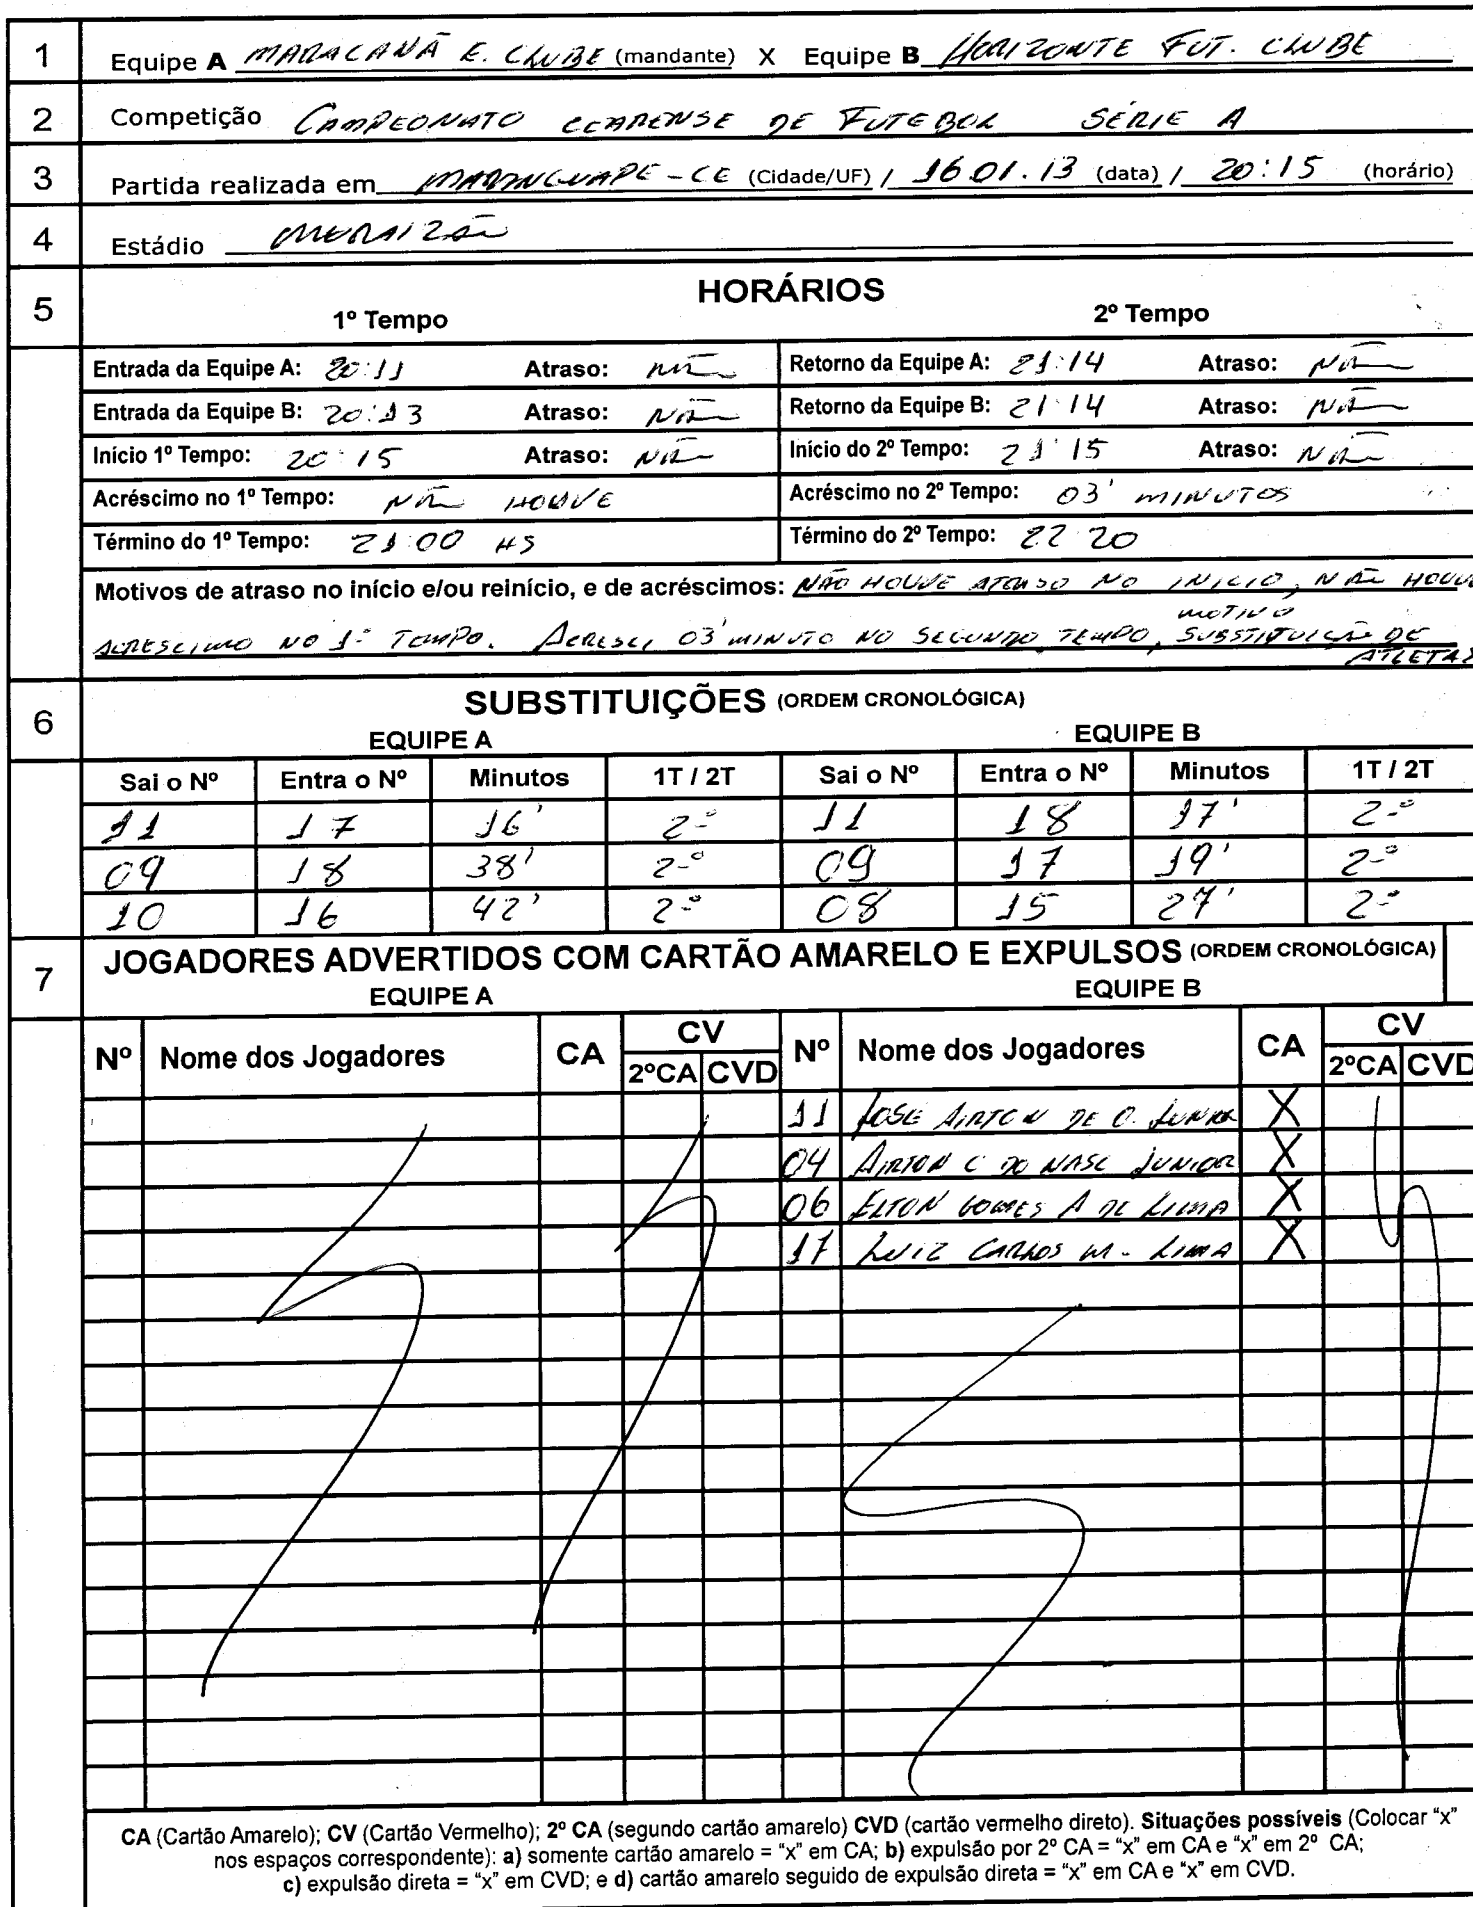 1 Equipe A MARACANÃ E. CLUBE (mandante) X Equipe B HORIZONTE FUT. CLUBE
2 Competição CAMPEONATO CEARENSE DE FUTEBOL SÉRIE A
3 Partida realizada em MARANGUAPE-CE (Cidade/UF) / 16.01.13 (data) / 20:15 (horário)
4 Estádio MORAIZÃO
5 HORÁRIOS
1º Tempo 2º Tempo
Entrada da Equipe A: 20:11 Atraso: NÃO Retorno da Equipe A: 21:14 Atraso: NÃO
Entrada da Equipe B: 20:13 Atraso: NÃO Retorno da Equipe B: 21:14 Atraso: NÃO
Início 1º Tempo: 20:15 Atraso: NÃO Início do 2º Tempo: 21:15 Atraso: NÃO
Acréscimo no 1º Tempo: NÃO HOUVE Acréscimo no 2º Tempo: 03' MINUTOS
Término do 1º Tempo: 21:00 HS Término do 2º Tempo: 22:20
Motivos de atraso no início e/ou reinício, e de acréscimos: NÃO HOUVE ATRASO NO INICIO, NÃO HOUVE
ACRESCIMO NO 1º TEMPO. ACRESCI 03' MINUTO NO SEGUNDO TEMPO, MOTIVO SUBSTITUIÇÃO DE
ATLETAS
6 SUBSTITUIÇÕES (ORDEM CRONOLÓGICA)
EQUIPE A EQUIPE B
Sai o Nº Entra o Nº Minutos 1T / 2T Sai o Nº Entra o Nº Minutos 1T / 2T
11 17 16' 2º 11 18 17' 2º
09 18 38' 2º 09 17 19' 2º
10 16 42' 2º 08 15 27' 2º
7 JOGADORES ADVERTIDOS COM CARTÃO AMARELO E EXPULSOS (ORDEM CRONOLÓGICA)
EQUIPE A EQUIPE B
Nº Nome dos Jogadores CA CV Nº Nome dos Jogadores CA CV
2ºCA CVD 2ºCA CVD
11 JOSE AIRTON DE O. JUNIOR X
04 AIRTON C DO NASC JUNIOR X
06 ELTON GOMES A DE LIMA X
17 LUIZ CARLOS M. LIMA X
CA (Cartão Amarelo); CV (Cartão Vermelho); 2º CA (segundo cartão amarelo) CVD (cartão vermelho direto). Situações possíveis (Colocar “x”
nos espaços correspondente): a) somente cartão amarelo = “x” em CA; b) expulsão por 2º CA = “x” em CA e “x” em 2º CA;
c) expulsão direta = “x” em CVD; e d) cartão amarelo seguido de expulsão direta = “x” em CA e “x” em CVD.